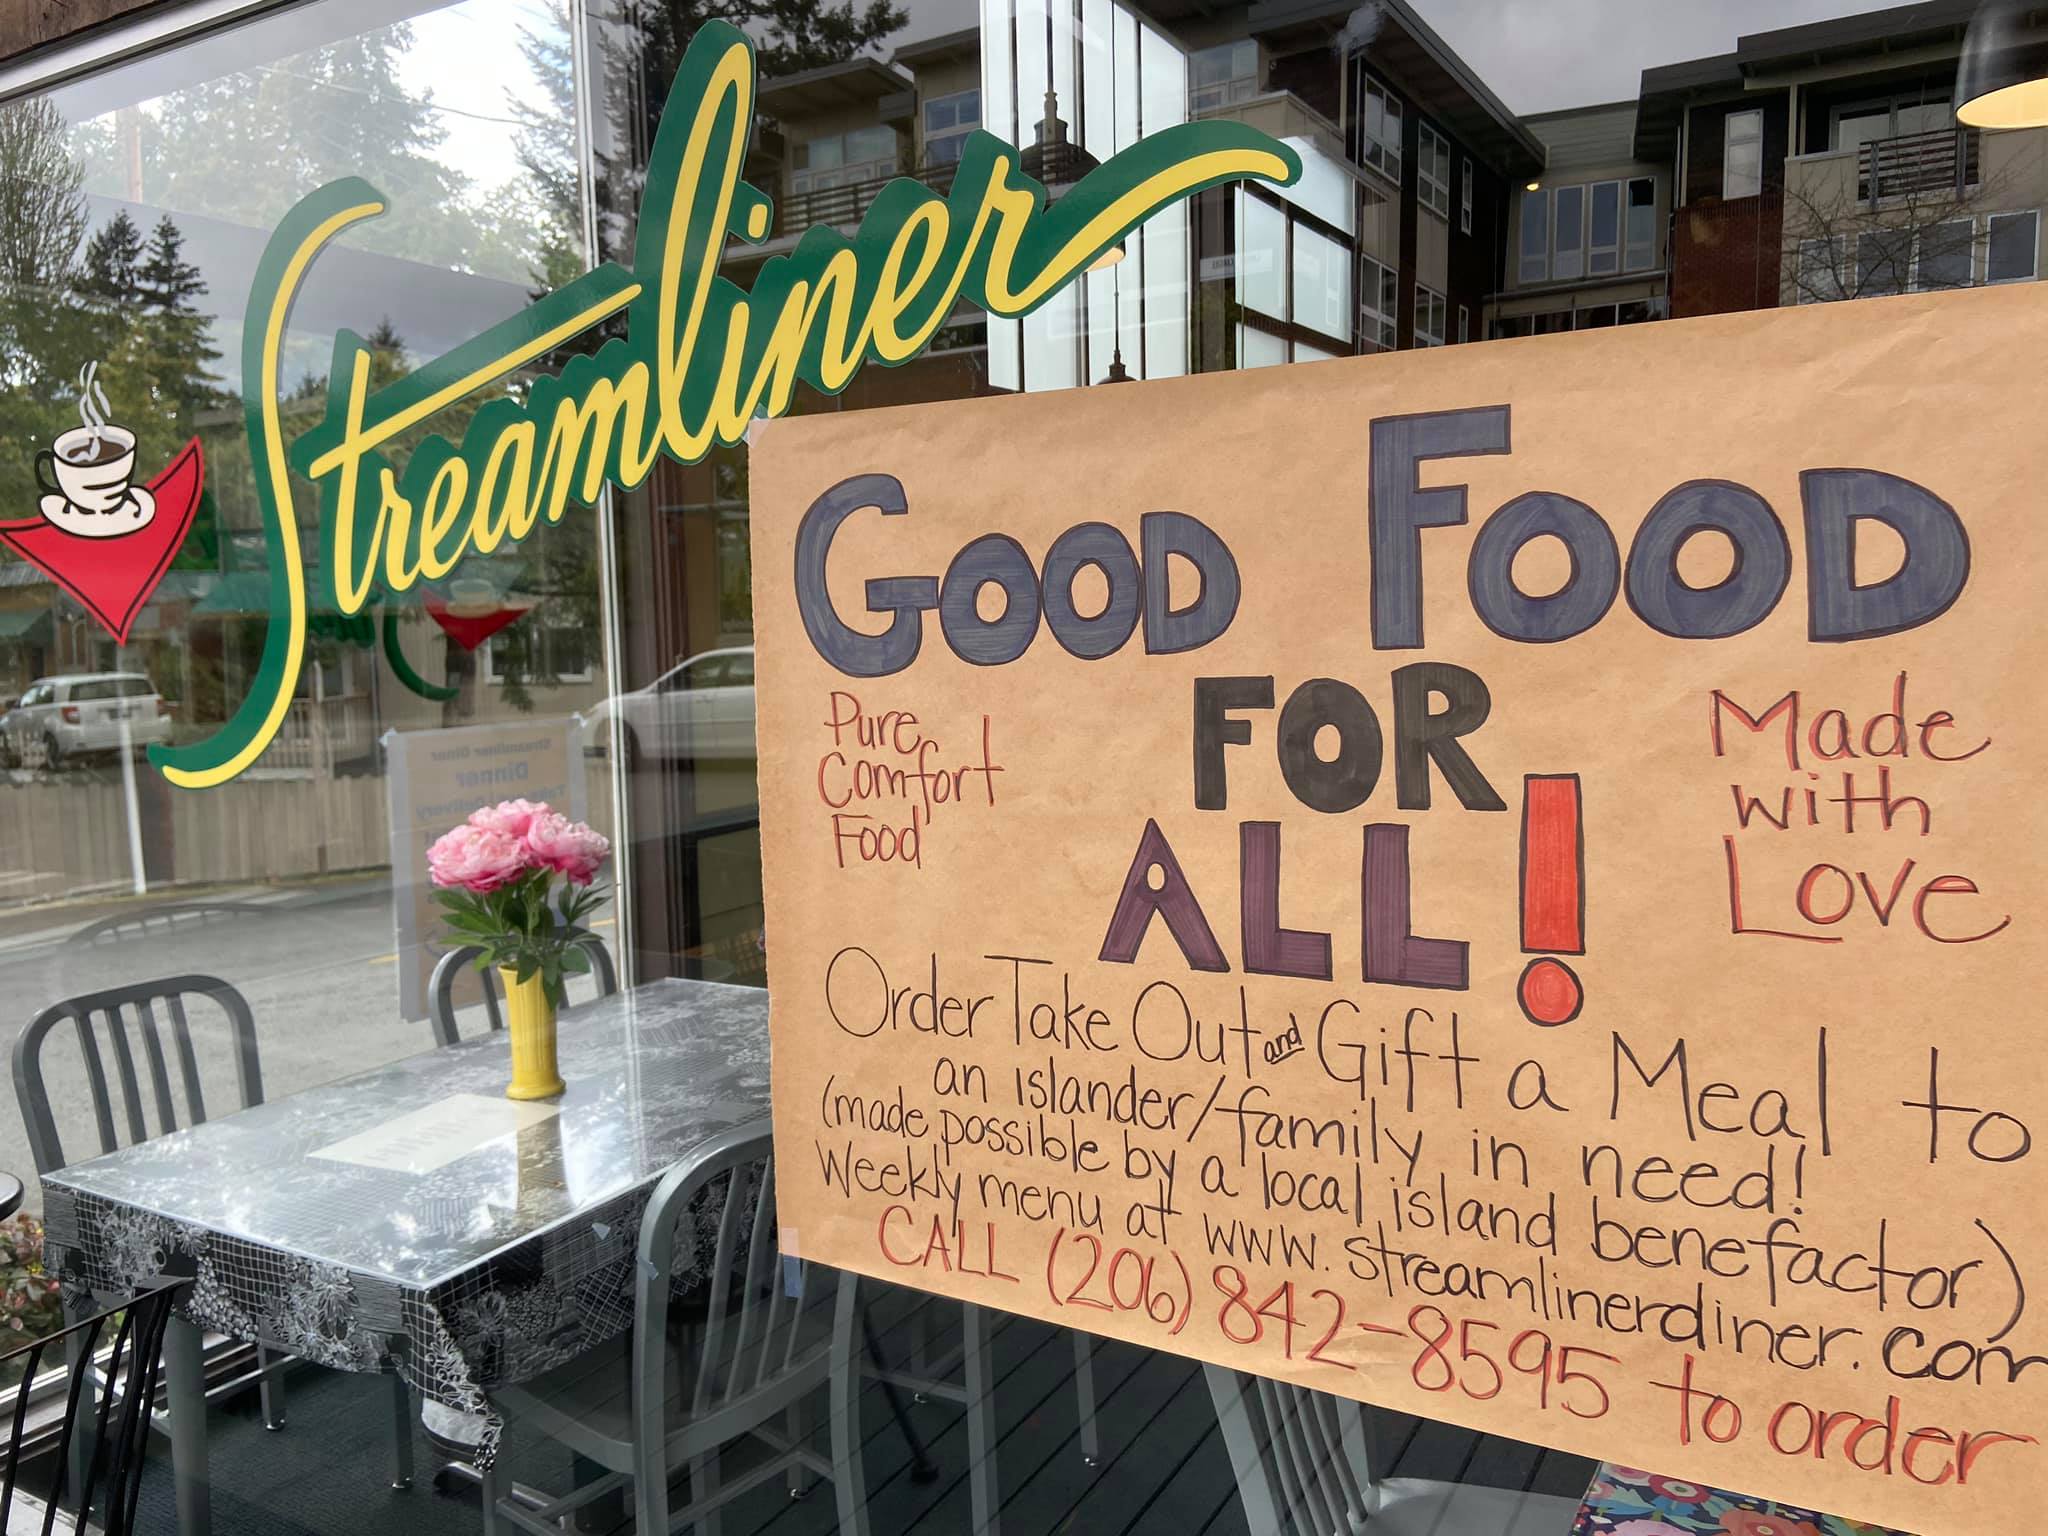 Streamliner
GOOD FOOD
FOR
ALL!
Pure
Comfort
Food
Made
with
Love
Order Take Out and Gift a Meal to
an islander/family in need!
(made possible by a local island benefactor)
Weekly menu at www.streamlinerdiner.com
CALL (206) 842-8595 to order
Streamliner Diner
Dinner